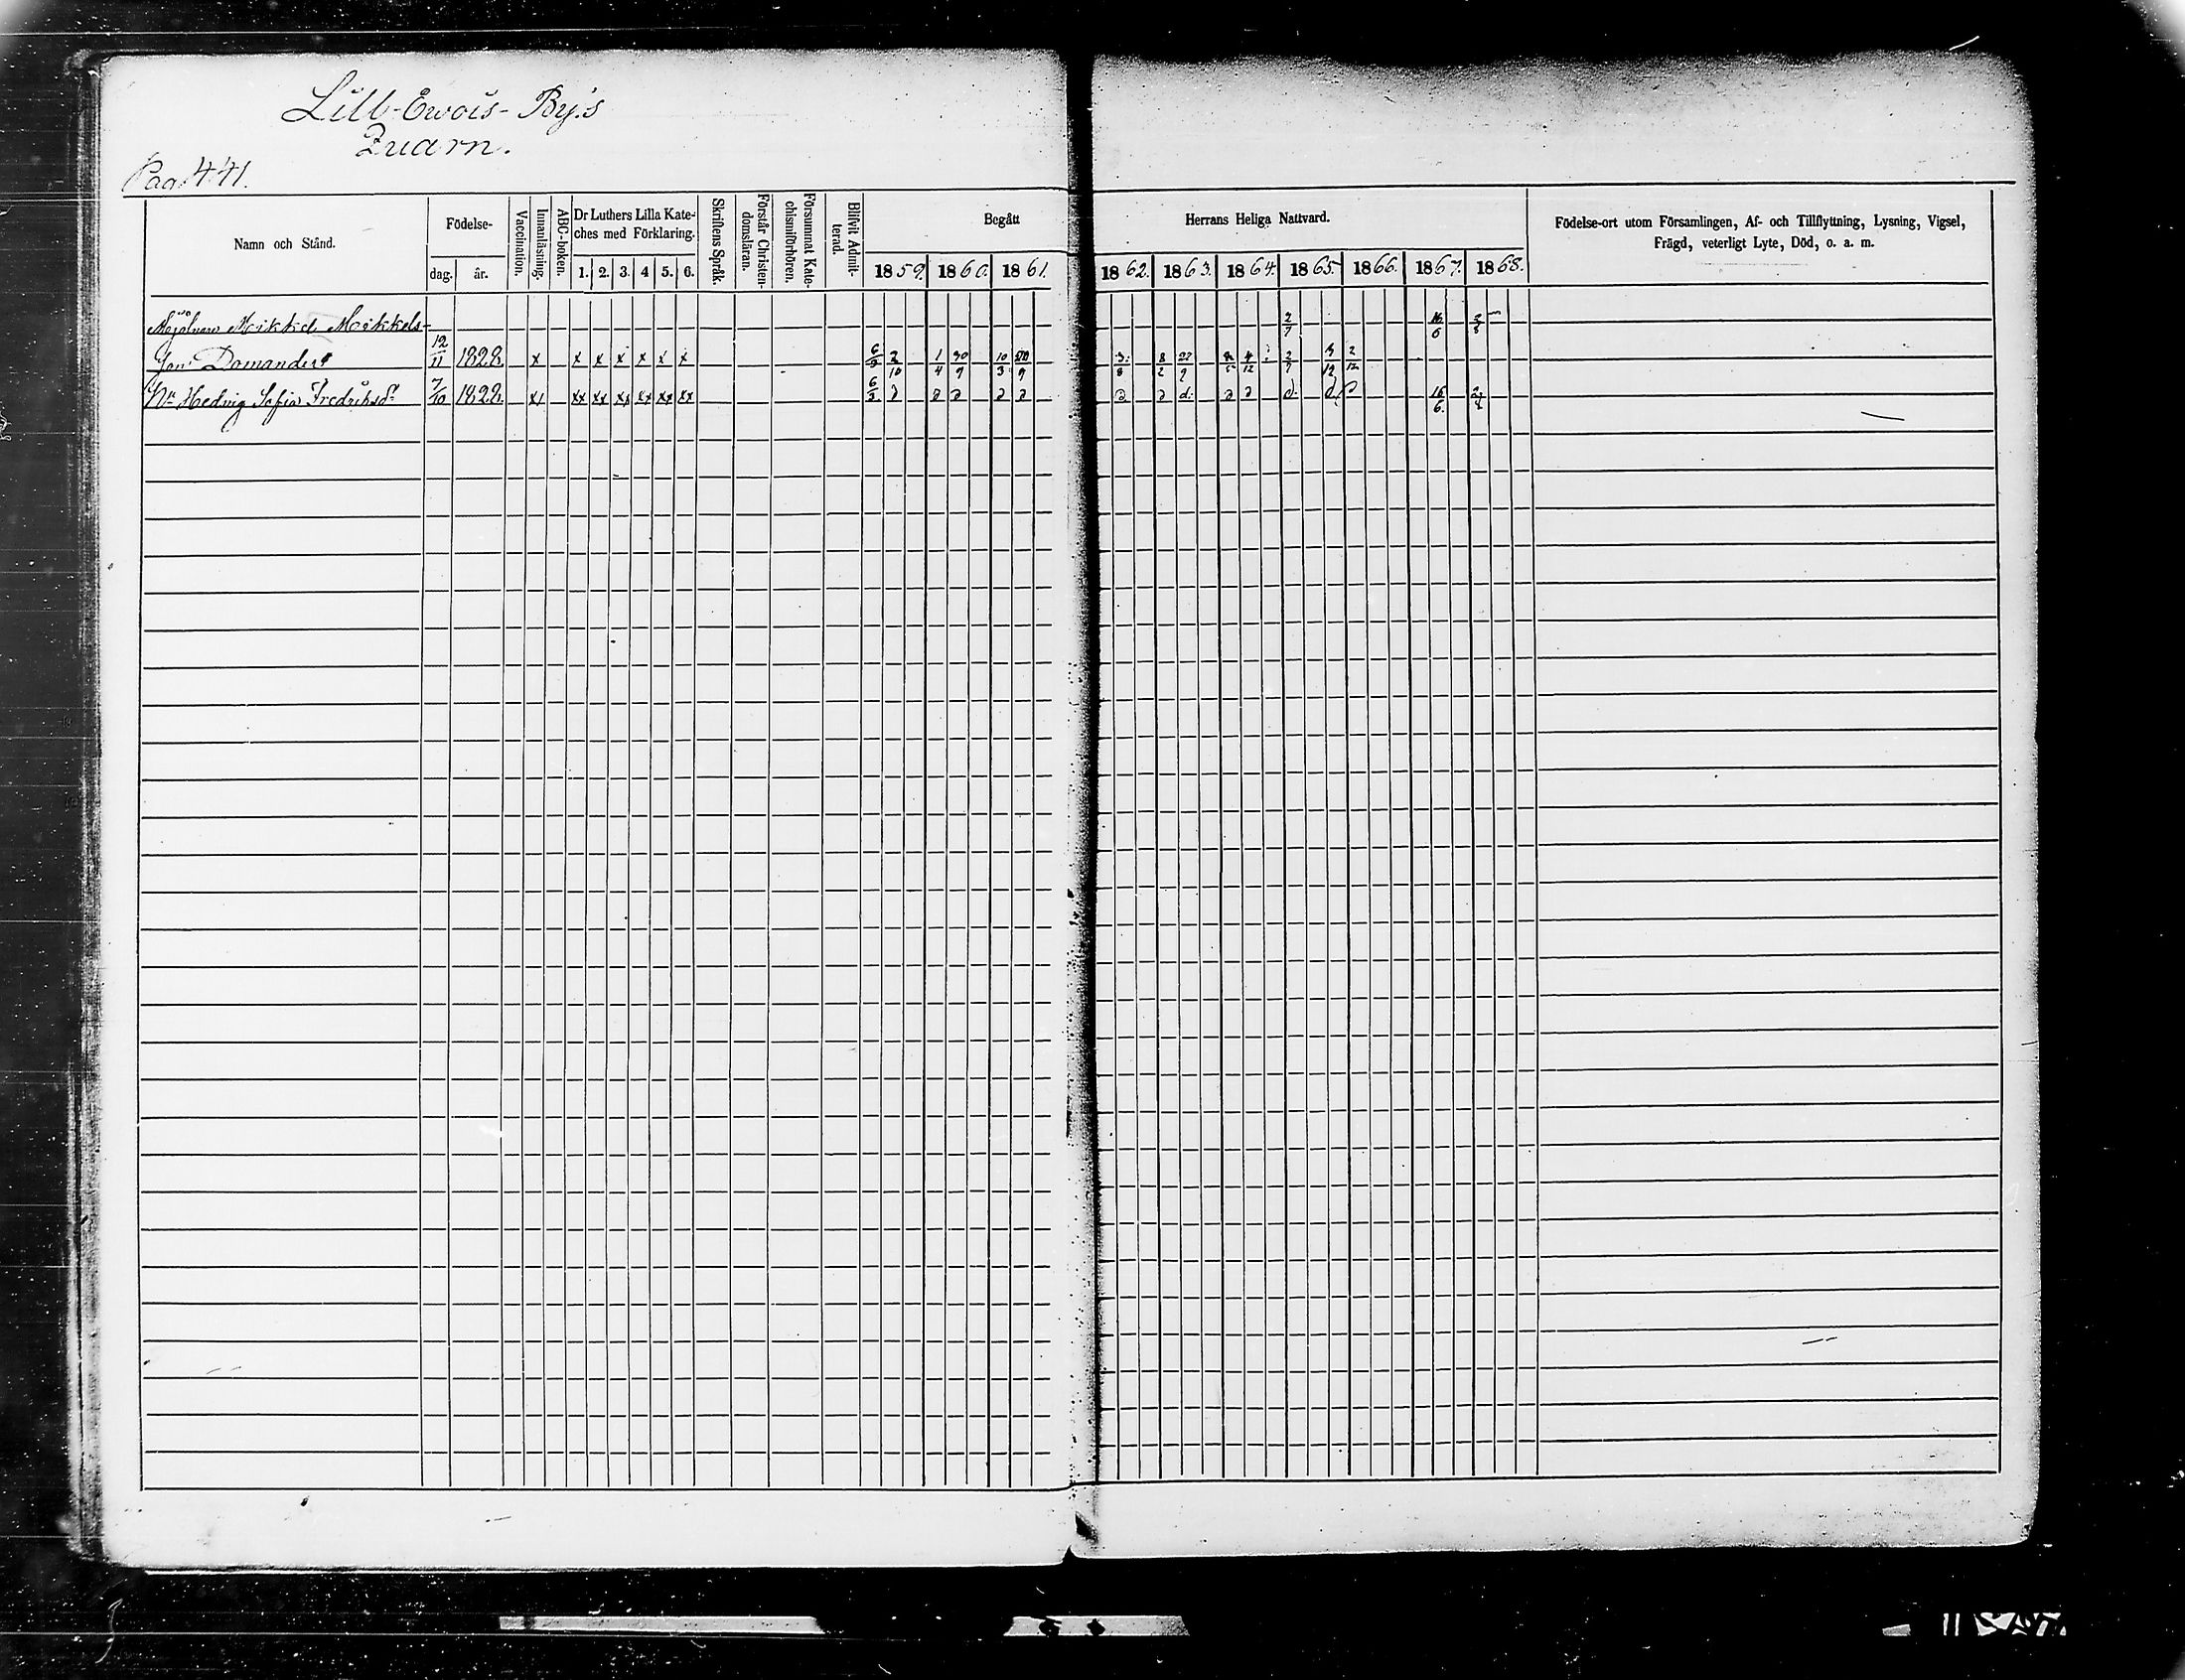 Lill-Ewois-By's
Quarn.
Pag. 441.
Namn och Stånd.
Födelse-
dag.
år.
Vaccination.
Innanläsning.
ABC-boken.
Dr Luthers Lilla Kate-
ches med Förklaring.
1. 2. 3. 4 5. 6.
Skriftens Språk.
Förstår Christen-
domsläran.
Försummat Kate-
chismiförhören.
Blifvit Admit-
terad.
Begått
Herrans Heliga Nattvard.
1859. 1860. 1861. 1862. 1863. 1864. 1865. 1866. 1867. 1868.
Födelse-ort utom Församlingen, Af- och Tillflyttning, Lysning, Vigsel,
Frägd, veterligt Lyte, Död, o. a. m.
Mjölnaren Mikkel Mikkels- 2/7 16/6
son Domander 12/11 1828. x x x x x x x 6/3 2/10 1/4 30/9 10/3 8/2 4/12 2/7 2/12
Hu Hedvig Sofia Fredriksdr 7/10 1822. xx xx xx xx xx xx xx 6/3 d d d d d d d d. d d d. d d 16/6.